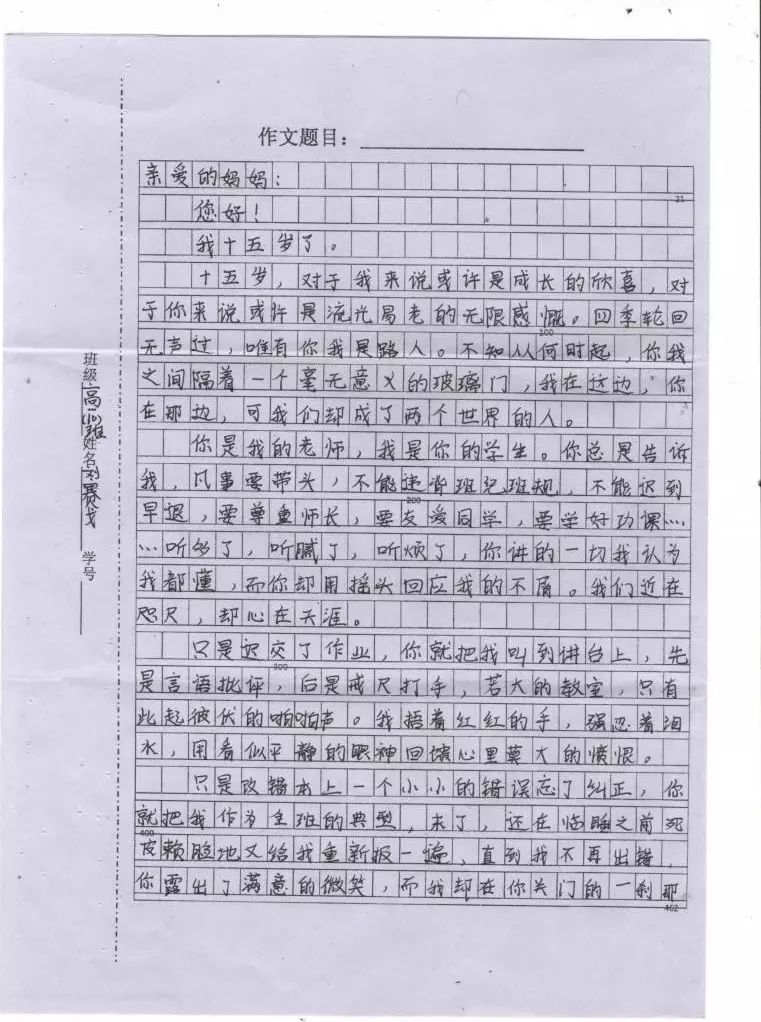 作文题目：
亲爱的妈妈：
21
您好！
我十五岁了。
十五岁，对于我来说或许是成长的欣喜，对
于你来说或许是流光易老的无限感慨。四季轮回
100
无声过，唯有你我是路人。不知从何时起，你我
之间隔着一个毫无意义的玻璃门，我在这边，你
在那边，可我们却成了两个世界的人。
你是我的老师，我是你的学生。你总是告诉
我，凡事要带头，不能违背班纪班规，不能迟到
200
早退，要尊重师长，要友爱同学，要学好功课……
……听够了，听腻了，听烦了，你讲的一切我认为
我都懂，而你却用摇头回应我的不屑。我们近在
咫尺，却心在天涯。
只是迟交了作业，你就把我叫到讲台上，先
300
是言语批评，后是戒尺打手，若大的教室，只有
此起彼伏的啪啪声。我捂着红红的手，强忍着泪
水，用看似平静的眼神回填心里莫大的愤恨。
只是改错本上一个小小的错误忘了纠正，你
就把我作为全班的典型，末了，还在临睡之前死
400
皮赖脸地又给我重新报一遍，直到我不再出错，
你露出了满意的微笑，而我却在你关门的一刹那
462
班级 高一(10)班 姓名 刘赛戈 学号